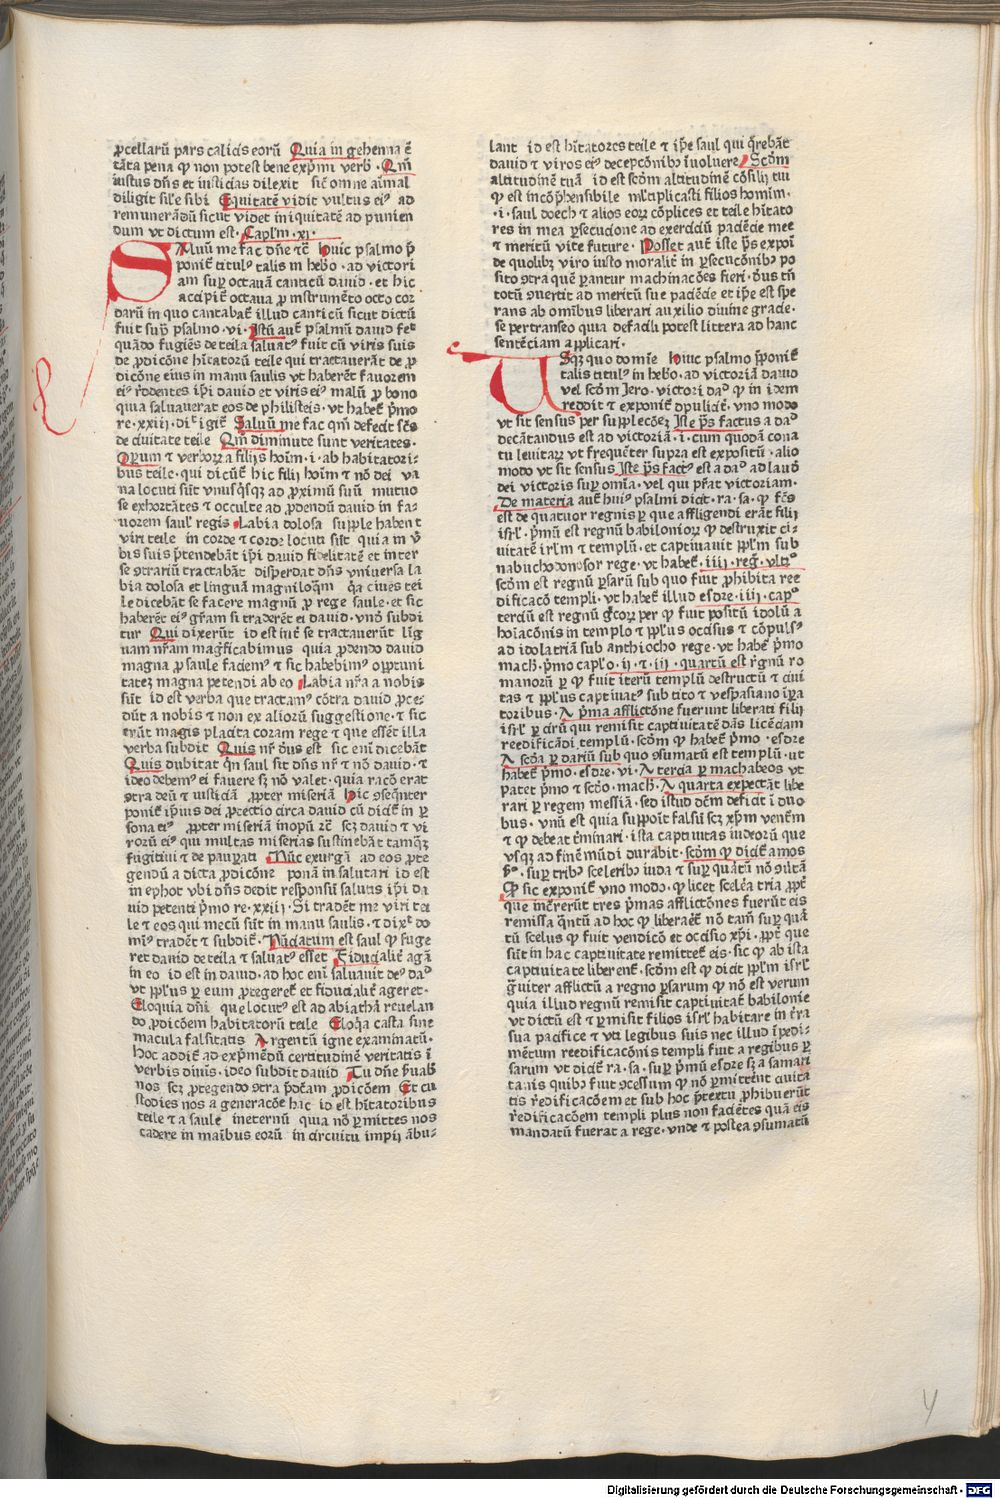 ꝓcellarũ pars calicis eorũ Quia in gehenna ē
tãta pena ꝙ non potest bene exp̃mi verb̾ · Qm̃
iustus dñs et iusticias dilexit sic̃ omne aĩmal
diligit sil̾e sibi Equitatē vidit vultus ei⁹ ad
remunerãdũ sicut videt iniquitatē ad punien
dum vt dictum est · Capl̾m · xi ·
SAluũ me fac dñe rc̃ huic psalmo p̃
ponit̃ titul⁹ talis in heb̾o · ad victori
am suꝑ octauã canticũ dauid · et hic
accipit̃ octaua ꝓ instrumẽto octo cor
darũ in quo cantabat̃ illud canticũ sicut dictũ
fuit sup̃ psalmo · vi · Istũ aut̃ psalmũ dauid fec̃
quãdo fugiẽs de ceila saluat⁹ fuit cũ viris suis
de ꝓdicõne hĩtatorũ ceile qui tractauerãt de ꝓ
dicõne eius in manu saulis vt haberẽt fauorem
ei⁹ r̃dentes ip̃i dauid et viris ei⁹ malũ ꝓ bono
quia saluauerat eos de philisteis · vt habet̃ p̃mo
re · xxiij · dic̃ igit̃ Saluũ me fac qm̃ defecit sc̃s
de ciuitate ceile Qm̃ diminute sunt veritates ·
Oprum ⁊ verborꝝ a filijs hoĩm · i · ab habitatori-
bus ceile · qui dicũt̃ hic filij hoĩm ⁊ nõ dei va
na locuti sũt vnusq̃sqꝫ ad ꝓximũ suũ mutuo
se exhortãtes ⁊ occulte ad ꝓdendũ dauid in fa-
uorem saul̾ regis Labia dolosa supple habent
viri ceile in corde ⁊ corde locuti sũt quia in v̾
bis suis p̃tendebãt ip̃i dauid fidelitatē et inter
se ꝯtrariũ tractabãt disperdat dñs vniuersa la
bia dolosa et linguã magniloq̃m q̃a ciues cei
le dicebãt se facere magnũ ꝓ rege saule · et sic
haberẽt ei⁹ gr̃am si traderẽt ei dauid · vnõ subdi
tur Qui dixerũt id est int̃ se tractauerũt lĩg
uam nr̃am mag̃ficabimus quia ꝓdendo dauid
magna ꝓ saule faciem⁹ ⁊ sic habebim⁹ oꝑtuni
tatez magna petendi ab eo Labia nr̃a a nobis
sũt id est verba que tractam⁹ cõtra dauid ꝓce-
dũt a nobis ⁊ non ex aliorũ suggestione · ⁊ sic
erũt magis placita coram rege ⁊ que essẽt illa
verba subdit Quis nr̃ dñs est sic eni dicebãt
Quis dubitat qñ saul sit dñs nr̃ ⁊ nõ dauid · ⁊
ideo debem⁹ ei fauere sꝫ nõ valet · quia racõ erat
ꝯtra deũ ⁊ iusticiã ꝓpter miseriã Hic ꝯseq̃nter
ponit̃ ip̃ius dei ꝓtectio circa dauid cũ dicit̃ in ꝑ
sona ei⁹ ꝓpter miseriã inopũ rc̃ scꝫ dauid ⁊ vi
rorũ ei⁹ qui multas miserias sustinebãt tamq̃ꝫ
fugitiui ⁊ depauꝑati Nũc exurgã ad eos ꝓte
gendũ a dicta ꝓdicõne ponã in salutari id est
in ephot vbi dñs dedit responsũ salutis ip̃i da
uid petenti p̃mo re · xxiij · Si tradẽt me viri cei
le ⁊ eos qui mecũ sũt in manu saulis · ⁊ dixᵗ do
mi⁹ tradẽt ⁊ subdit̃ · Nũciatum est saul ꝙ fuge
ret dauid de ceila ⁊ saluat⁹ esset Fiducialit̃ agã
in eo id est in dauid · ad hoc eni saluauit de⁹ dad
vt ppl̾us ꝑ eum ꝓtegeret̃ et fiducialit̃ ageret ·
Eloquia dñi que locut⁹ est ad abiathã reuelan
do ꝓdicõem habitatorũ ceile Eloq̃a casta sine
macula falsitatis Argentũ igne examinatũ ·
hoc addit̃ ad exp̃mẽdũ certitudinē veritatis ĩ
verbis diuis · ideo subdit dauid Tu dñe p̃uab̾
nos scꝫ ꝓtegendo ꝯtra p̃dc̃am ꝓdicõem Et cu
stodies nos a generacõe hac id est hĩtatoribus
ceile ⁊ a saule ineternũ quia nõ ꝑmittes nos
cadere in maibus eorũ in circuitu impij ãbu-
lant id est hĩtatores ceile ⁊ ip̃e saul qui q̃rebãt
dauid ⁊ viros ei⁹ decepcõnibꝫ ĩuoluere Scdm̃
altitudinē tuã id est scdm̃ altitudinē cõsilij tui
ꝙ est incõp̃hensibile ml̾tiplicasti filios homĩm ·
· i · saul doech ⁊ alios eorꝝ cõplices et ceile hĩtato
res in mea ꝑsecucione ad exerciciũ paciẽcie mee
et meritũ vite future · Posset aut̃ iste p̃s expoĩ
de quolibꝫ viro iusto moralit̃ in ꝑsecucõnibꝫ po
sito ꝯtra quē ꝑantur machinacões fieri · dñs tñ
totũ ꝯuertit ad meritũ sue paciẽcie et ip̃e est spe
rans ab omibus liberari auxilio diuine gracie ·
se pertranseo quia defacili potest littera ad hanc
sentẽciam applicari ·
USqꝫ quo domĩe huic psalmo p̃ponit̃
talis titul⁹ in heb̾o · ad victoriã dauid
vel scdm̃ Jero · victori dad ꝙ in idem
reddit ⁊ exponit̃ dpulicit̃ · vno modo
vt sit sensus per suppleçõeꝫ Iste p̃s factus a dad
decãtandus est ad victoriã · i · cum quodã cona
tu leuitarꝝ vt freq̃uẽter supra est expositũ · alio
modo vt sit sensus Iste p̃s fact⁹ est a dad ad laudē
dei victoris suꝑ omĩa · vel qui p̃rat victoriam ·
De materia aut̃ hui⁹ psalmi dicit · ra · sa · ꝙ fc̃s
est de quatuor regnis ꝑ que affligendi erãt filij
isrl̾ · p̃mũ est regnũ babiloniorꝝ ꝙ destruxit ci-
uitatē irl̾m ⁊ templũ · et captiuauit ppl̾m sub
nabuchodonosor rege · vt habet̃ · iiij · reg̃ · vltꝰ
scdm̃ est regnũ ꝑsarũ sub quo fuit ꝓhibita ree
dificacõ templi · vt habet̃ illud esdre · iiij · capº
terciũ est regnũ g̃corꝝ per ꝙ fuit positũ idolũ a
boiacõnis in templo ⁊ ppl̾us occisus ⁊ cõpuls⁹
ad idolatriã sub anthiocho rege · vt habet̃ p̃mo
mach · p̃mo capl̾o · ij · ⁊ · iij · quartũ est r̃gnũ ro
manorũ ꝑ ꝙ fuit iterũ templũ destructũ ⁊ ciui
tas ⁊ ppl̾us captiuat⁹ sub tito ⁊ vespasiano iꝑa
toribus · A p̃ma afflictõne fuerunt liberati filij
isrl̾ ꝑ cirũ qui remisit captiuitatē dãs licẽciam
reedificãdi templũ · scdm̃ ꝙ habet̃ p̃mo · esdre
A scda ꝑ dariũ sub quo ꝯsumatũ est templũ · vt
habet̃ p̃mo · esdre · vi · A tercia ꝑ machabeos vt
patet p̃mo ⁊ scdo · mach · A quarta expectãt libe
rari ꝑ regem messiã · sed istud dc̃m deficit ĩ duo
bus · vnũ est quia supponit falsũ scꝫ xp̃m ventẽm
⁊ ꝙ debeat t̃minari · ista captiuitas iudeorũ que
vsqꝫ ad finē mũdi durabit · scdm̃ ꝙ dicit̃ amos
pº · suꝑ tribꝫ sceleribꝫ iuda ⁊ suꝑ quartũ nõ ꝯũtã
Qp sic exponit̃ vno modo · ꝙ licet scelẽa tria ꝓpt̃
que inc̃rerũt tres p̃mas afflictõnes fuerũt eis
remissa q̃ntũ ad hoc ꝙ liberaẽt̃ nõ tam̃ suꝑ qua
tũ scelus ꝙ fuit vendicõ et occisio xp̃i · ꝓpt̃ que
sũt in hac captiuitate remittet̃ eis · sic ꝙ ab ista
captiuitate liberent̃ · scdm̃ est ꝙ dicit ppl̾m isrl̾
g̃uiter afflictũ a regno ꝑsarum ꝙ nõ est verum
quia illud regnũ remisit captiuitat̃ babilonie
vt dictũ est ⁊ ꝑmisit filios isrl̾ habitare in tr̃a
sua pacifice ⁊ vti legibus suis nec illud ĩpedi-
mẽtum reedificacõnis templi fiuit a regibus ꝑ
sarum vt dicit̃ ra · sa · suꝑ p̃mũ esdre sꝫ a samari
tanis quibꝫ fuit ꝯcessum ꝙ nõ ꝑmitterẽt ciuita
tis r̃edificacõem et sub hoc p̃textu ꝓhibuerũt
r̃edificacõem templi plus non faciẽtes quã eis
mandatũ fuerat a rege · vnde ⁊ postea ꝯsumatũ
y
Digitalisierung gefördert durch die Deutsche Forschungsgemeinschaft · DFG